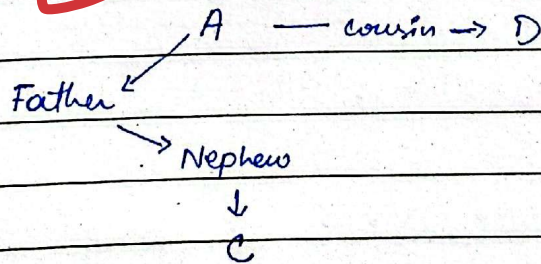 A — cousin → D
Father
Nephew
↓
C